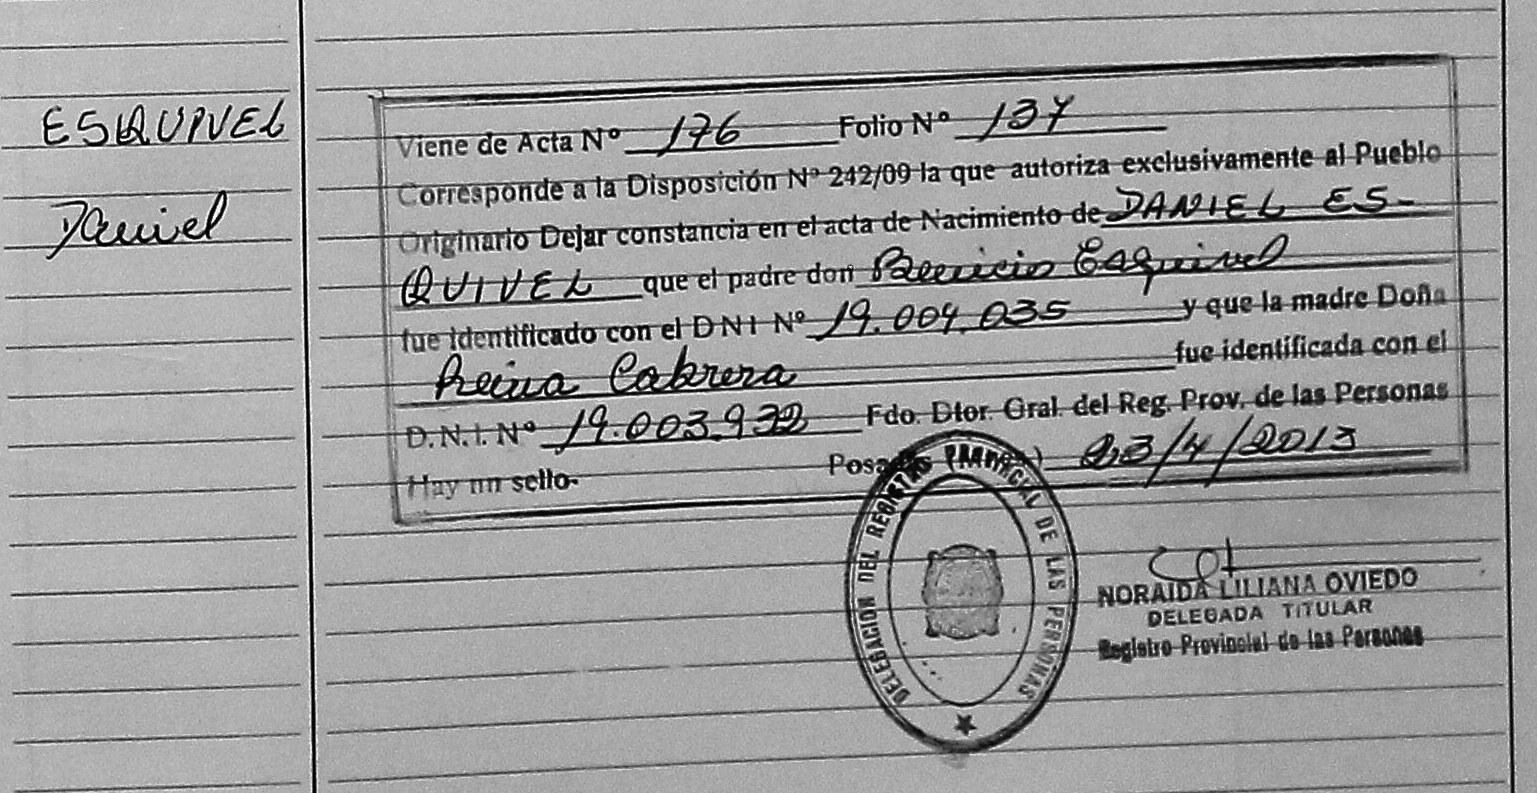 ESQUIVEL
Daniel
Viene de Acta Nº 176 Folio Nº 137
Corresponde a la Disposición Nº 242/09 la que autoriza exclusivamente al Pueblo
Originario Dejar constancia en el acta de Nacimiento de DANIEL ES-
QUIVEL que el padre don Esquivel
fue identificado con el DNI Nº 19.004.035 y que la madre Doña
Reina Cabrera fue identificada con el
D.N.I. Nº 19.003.932 Fdo. Dtor. Gral. del Reg. Prov. de las Personas
Hay un sello- 23/4/2013
DELEGACION DEL REGISTRO PROVINCIAL DE LAS PERSONAS
NORAIDA LILIANA OVIEDO
DELEGADA TITULAR
Registro Provincial de las Personas